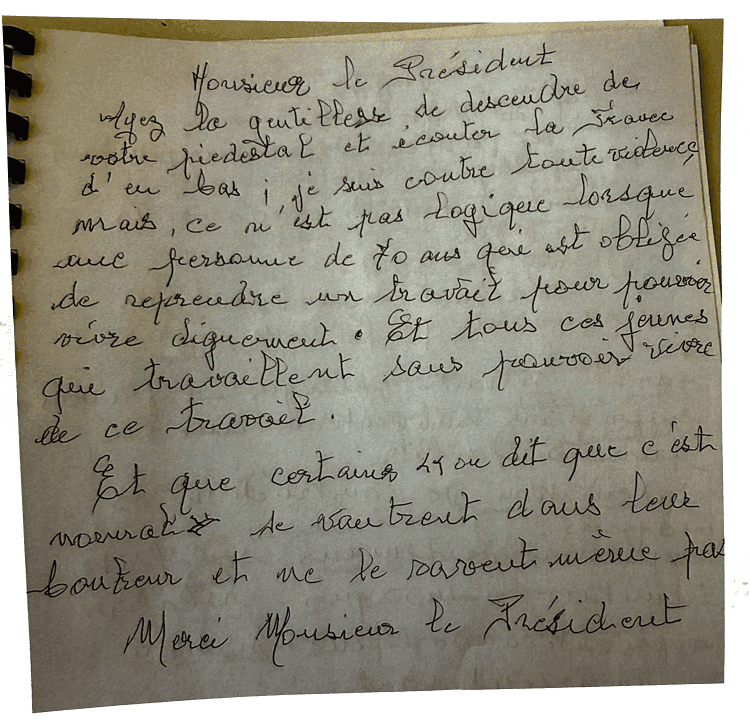 Monsieur le Président
Ayez la gentillesse de descendre de
votre piedestal et écouter la France
d'en bas ; je suis contre toute violence,
mais, ce n'est pas logique lorsque
une personne de 70 ans qui est obligée
de reprendre un travail pour pouvoir
vivre dignement. Et tous ces jeunes
qui travaillent sans pouvoir vivre
de ce travail.
Et que certains dit que c'est
normal se vautrent dans leur
bonheur et ne le savent même pas
Merci Monsieur le Président